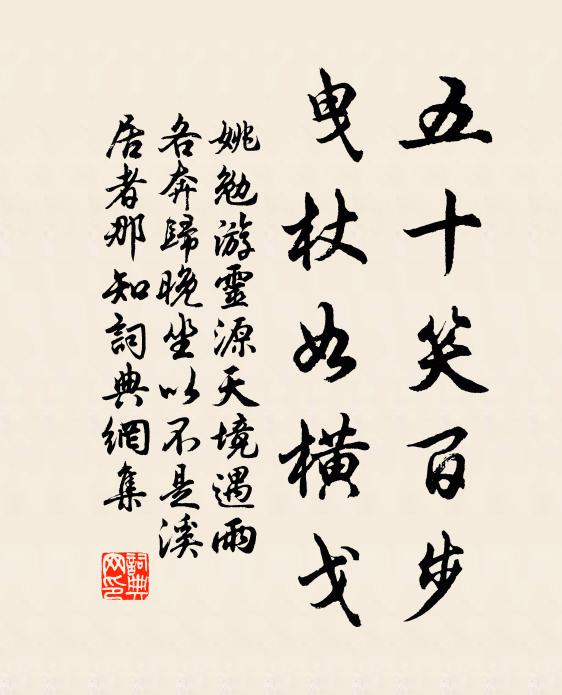 五十笑百步
曳杖如横戈
姚勉游靈源天境遇雨
各奔歸晚坐以不是溪
居者那知詞典網集
詞典网印